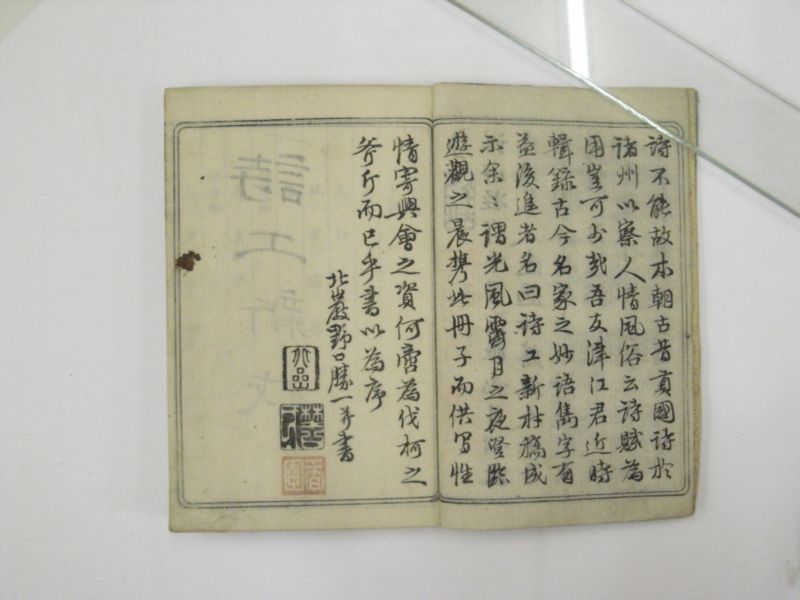 詩不能故本朝古昔貢國詩於
諸州以察人情風俗云詩賦為
用豈可少哉吾友津江君近時
輯錄古今名家之妙語雋字有
益後進者名曰詩工新材稿成
示余〻謂光風霽月之夜登臨
遊觀之晨携此冊子而供寫性
情寄興會之資何啻為伐柯之
斧斤而已乎書以為序
北巖野口勝一并書